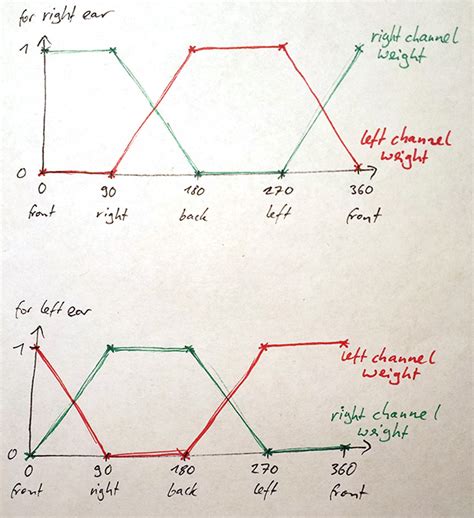 for right ear
1
right channel
weight
left channel
weight
0
0 90 180 270 360
front right back left front
for left ear
1
left channel
weight
right channel
weight
0
0 90 180 270 360
front right back left front